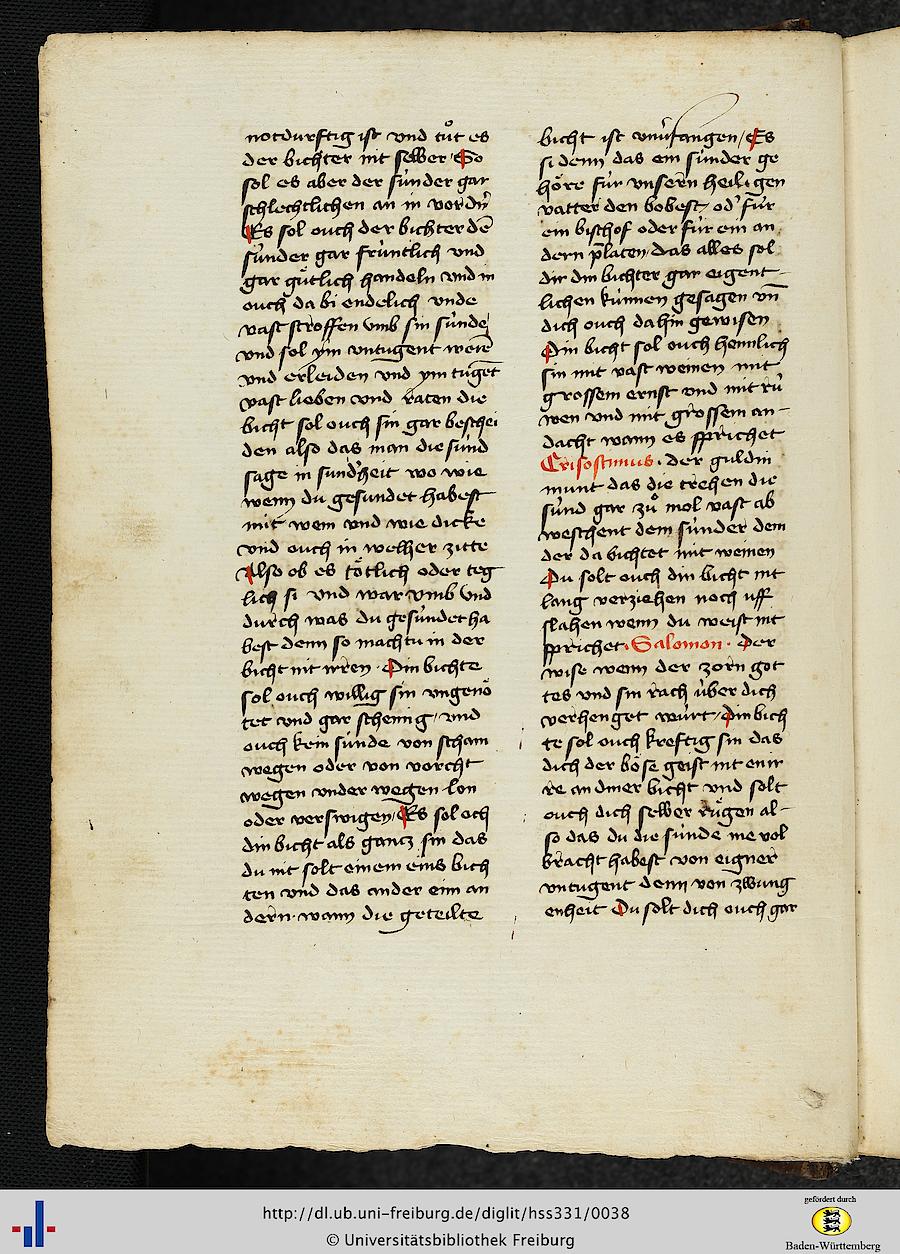 notdurftig ist vnd tuͦt es
der bichter nit selber So
sol es aber der sùnder gar
schlechtlichen an in vordn̄
Es sol ouch der bichter dē
sùnder gar frùntlich vnd
gar guͤtlich handeln vnd in
ouch da bi endelich vnde
vast stroffen vmb sin sùnde
vnd sol ym vntugent werē
vnd erleiden vnd ym tugēt
vast lieben vnd raten die
bicht sol ouch sin gar beschei
den also das man die sùnd
sage in sundˀheit wo wie
wenn du gesundet habest
mit wem vnd wie dicke
vnd ouch in welher zitte
Also ob es toͤtlich oder teg
lich si vnd war vmb vnd
durch was du gesùndet ha
best denn so machtu in der
bicht nit irren · Din bichte
sol ouch willig sin vngenoͤ
tet vnd gar schemig / vnd
ouch kein sùnde von scham
wegen oder von vorcht
wegen vnder wegen lon
oder verswigen / Es sol och
din bicht als gancz sin das
du nit solt einem eins bich
ten vnd das ander eim an
dern · wann die geteilte
bicht ist vnùfangen / Es
si denn das ein sùnder ge
hoͤre fùr vnsern heiligen
vatter den bobest / odˀ fùr
ein bischof oder fùr ein an
dern p̄laten / das alles sol
dir din bichter gar eigent-
lichen kùnnen gesagen vn̄
dich ouch dahin gewisen
Din bicht sol ouch heimlich
sin mit vast weinen mit
grossem ernst vnd mit rù
wen vnd mit grossem an-
dacht wann es sprichet
Crisostimus · der guldin
munt das die trehen die
sùnd gar zuͦ mol vast ab
weschent dem sùnder dem
der da bichtet mit weinen
Du solt ouch din bicht nit
lang verziehen noch uff
slahen wenn du weist nit
sprichet · Salomon · der
wise wenn der zorn got
tes vnd sin rach ùber dich
verhenget wùrt / Din bich
te sol ouch kreftig sin das
dich der boͤse geist nit enir
re an diner bicht vnd solt
ouch dich selber ruͤgen al-
so das du die sùnde me vol
bracht habest von eigner
vntugent denn von zwung
enheit Du solt dich ouch gar
http://dl.ub.uni-freiburg.de/diglit/hss331/0038
© Universitätsbibliothek Freiburg
gefördert durch
Baden-Württemberg